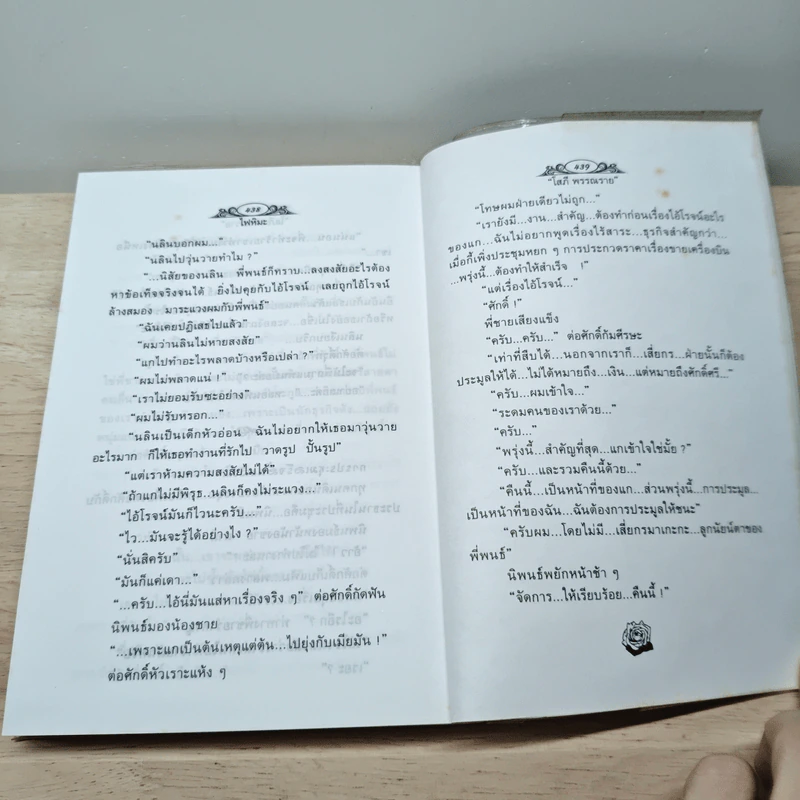 438
ไฟหิมะ
“นลินบอกผม...”
“นลินไปวุ่นวายทำไม ?”
“...นิสัยของนลิน พี่พนธ์ก็ทราบ...ลงสงสัยอะไรต้อง
หาข้อเท็จจริงจนได้ ยิ่งไปคุยกับไอ้โรจน์ เลยถูกไอ้โรจน์
ล้างสมอง มาระแวงผมกับพี่พนธ์”
“ฉันเคยปฏิเสธไปแล้ว”
“ผมว่านลินไม่หายสงสัย”
“แกไปทำอะไรพลาดบ้างหรือเปล่า ?”
“ผมไม่พลาดแน่ !”
“เราไม่ยอมรับซะอย่าง”
“ผมไม่รับหรอก...”
“นลินเป็นเด็กหัวอ่อน ฉันไม่อยากให้เธอมาวุ่นวาย
อะไรมาก ก็ให้เธอทำงานที่รักไป วาดรูป ปั้นรูป”
“แต่เราห้ามความสงสัยไม่ได้”
“ถ้าแกไม่มีพิรุธ..นลินก็คงไม่ระแวง...”
“ไอ้โรจน์มันก็ไวนะครับ...”
“ไว...มันจะรู้ได้อย่างไร ?”
“นั่นสิครับ”
“มันก็แค่เดา...”
“...ครับ...ไอ้นี่มันแส่หาเรื่องจริง ๆ” ต่อศักดิ์กัดฟัน
นิพนธ์มองน้องชาย
“...เพราะแกเป็นต้นเหตุแต่ต้น...ไปยุ่งกับเมียมัน !”
ต่อศักดิ์หัวเราะแห้ง ๆ
439
“โสภี พรรณราย”
“โทษผมฝ่ายเดียวไม่ถูก...”
“เรายังมี...งาน...สำคัญ...ต้องทำก่อนเรื่องไอ้โรจน์อะไร
ของแก...ฉันไม่อยากพูดเรื่องไร้สาระ...ธุรกิจสำคัญกว่า...
เมื่อกี้เพิ่งประชุมหยก ๆ การประกวดราคาเรื่องขายเครื่องบิน
...พรุ่งนี้...ต้องทำให้สำเร็จ !”
“แต่เรื่องไอ้โรจน์...”
“ศักดิ์ !”
พี่ชายเสียงแข็ง
“ครับ...ครับ...” ต่อศักดิ์ก้มศีรษะ
“เท่าที่สืบได้...นอกจากเราก็...เสี่ยกร...ฝ่ายนั้นก็ต้อง
ประมูลให้ได้...ไม่ได้หมายถึง...เงิน...แต่หมายถึงศักดิ์ศรี...”
“ครับ...ผมเข้าใจ...”
“ระดมคนของเราด้วย...”
“ครับ...”
“พรุ่งนี้...สำคัญที่สุด...แกเข้าใจใช่มั้ย ?”
“ครับ...และรวมคืนนี้ด้วย...”
“คืนนี้...เป็นหน้าที่ของแก...ส่วนพรุ่งนี้...การประมูล...
เป็นหน้าที่ของฉัน...ฉันต้องการประมูลให้ชนะ”
“ครับผม...โดยไม่มี...เสี่ยกรมาเกะกะ...ลูกนัยน์ตาของ
พี่พนธ์”
นิพนธ์พยักหน้าช้า ๆ
“จัดการ...ให้เรียบร้อย...คืนนี้ !”